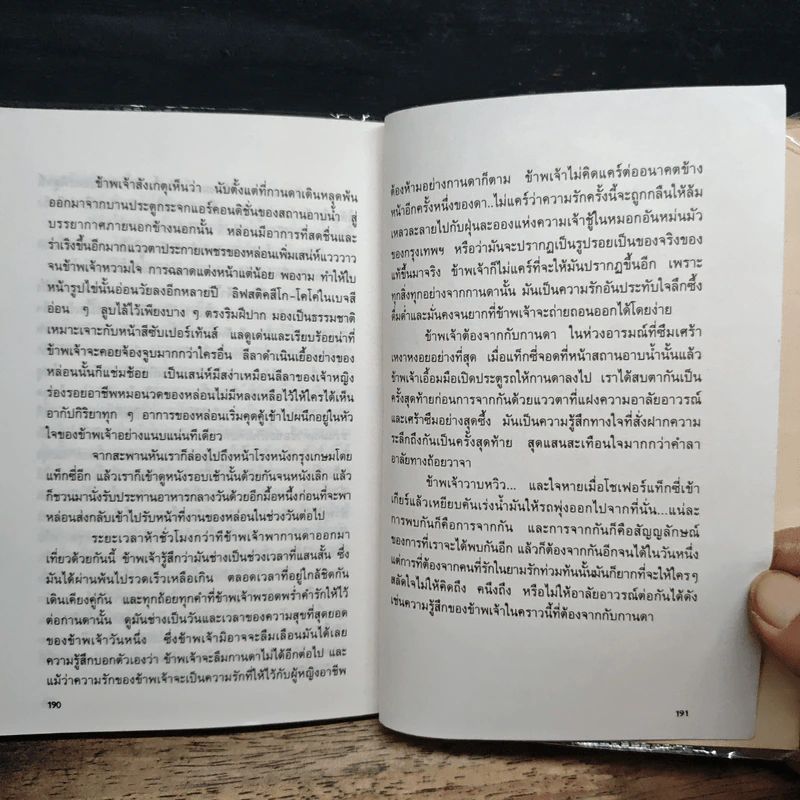 ข้าพเจ้าสังเกตุเห็นว่า นับตั้งแต่ที่กานดาเดินหลุดพ้น
ออกมาจากบานประตูกระจกแอร์คอนดิชั่นของสถานอาบน้ำ สู่
บรรยากาศภายนอกข้างนอกนั้น หล่อนมีอาการที่สดชื่นและ
ร่าเริงขึ้นอีกมากแววตาประกายเพชรของหล่อนเพิ่มเสน่ห์แวววาว
จนข้าพเจ้าหวามใจ การฉลาดแต่งหน้าแต่น้อย พองาม ทำให้ใบ
หน้ารูปไข่นั้นอ่อนวัยลงอีกหลายปี ลิฟสติคสีโก-โคโค่ในเบจสี
อ่อน ๆ ลูบไล้ไว้เพียงบาง ๆ ตรงริมฝีปาก มองเป็นธรรมชาติ
เหมาะเจาะกับหน้าสีซับเปอร์เท้นส์ แลดูเด่นและเรียบร้อยน่าที่
ข้าพเจ้าจะคอยจ้องจูบมากกว่าใครอื่น ลีลาดำเนินเยื้องย่างของ
หล่อนนั้นก็แช่มช้อย เป็นเสน่ห์มีสง่าเหมือนลีลาของเจ้าหญิง
ร่องรอยอาชีพหมอนวดของหล่อนไม่มีหลงเหลือไว้ให้ใครได้เห็น
อากัปกิริยาทุก ๆ อาการของหล่อนเริ่มคุดคู้เข้าไปผนึกอยู่ในหัว
ใจของข้าพเจ้าอย่างแนบแน่นทีเดียว
จากสะพานหันเราก็ล่องไปถึงหน้าโรงหนังกรุงเกษมโดย
แท็กซี่อีก แล้วเราก็เข้าดูหนังรอบเช้านั้นด้วยกันจนหนังเลิก แล้ว
ก็ชวนมานั่งรับประทานอาหารกลางวันด้วยอีกมื้อหนึ่งก่อนที่จะพา
หล่อนส่งกลับเข้าไปรับหน้าที่งานของหล่อนในช่วงวันต่อไป
ระยะเวลาห้าชั่วโมงกว่าที่ข้าพเจ้าพากานดาออกมา
เที่ยวด้วยกันนี้ ข้าพเจ้ารู้สึกว่ามันช่างเป็นช่วงเวลาที่แสนสั้น ซึ่ง
มันได้ผ่านพ้นไปรวดเร็วเหลือเกิน ตลอดเวลาที่อยู่ใกล้ชิดกัน
เดินเคียงคู่กัน และทุกถ้อยทุกคำที่ข้าพเจ้าพรอดพร่ำคำรักให้ไว้
ต่อกานดานั้น ดูมันช่างเป็นวันและเวลาของความสุขที่สุดยอด
ของข้าพเจ้าวันหนึ่ง ซึ่งข้าพเจ้ามิอาจจะลืมเลือนมันได้เลย
ความรู้สึกบอกตัวเองว่า ข้าพเจ้าจะลืมกานดาไม่ได้อีกต่อไป และ
แม้ว่าความรักของข้าพเจ้าจะเป็นความรักที่ให้ไว้กับผู้หญิงอาชีพ
190
ต้องห้ามอย่างกานดาก็ตาม ข้าพเจ้าไม่คิดแคร์ต่ออนาคตข้าง
หน้าอีกครั้งหนึ่งของดา..ไม่แคร์ว่าความรักครั้งนี้จะถูกกลืนให้ล้ม
เหลวละลายไปกับฝุ่นละอองแห่งความเจ้าชู้ในหมอกอันหม่นมัว
ของกรุงเทพฯ หรือว่ามันจะปรากฏเป็นรูปรอยเป็นของจริงของ
แท้ขึ้นมาจริง ข้าพเจ้าก็ไม่แคร์ที่จะให้มันปรากฏขึ้นอีก เพราะ
ทุกสิ่งทุกอย่างจากกานดานั้น มันเป็นความรักอันประทับใจลึกซึ้ง
ดื่มด่ำและมั่นคงจนยากที่ข้าพเจ้าจะถ่ายถอนออกได้โดยง่าย
ข้าพเจ้าต้องจากกับกานดา ในห่วงอารมณ์ที่ซึมเศร้า
เหงาหงอยอย่างที่สุด เมื่อแท็กซี่จอดที่หน้าสถานอาบน้ำนั้นแล้ว
ข้าพเจ้าเอื้อมมือเปิดประตูรถให้กานดาลงไป เราได้สบตากันเป็น
ครั้งสุดท้ายก่อนการจากกันด้วยแววตาที่แฝงความอาลัยอาวรณ์
และเศร้าซึมอย่างสุดซึ้ง มันเป็นความรู้สึกทางใจที่สั่งฝากความ
ระลึกถึงกันเป็นครั้งสุดท้าย สุดแสนสะเทือนใจมากกว่าคำลา
อาลัยทางถ้อยวาจา
ข้าพเจ้าวาบหวิว... และใจหายเมื่อโชเฟอร์แท็กซี่เข้า
เกียร์แล้วเหยียบคันเร่งน้ำมันให้รถพุ่งออกไปจากที่นั่น...แน่ละ
การพบกันก็คือการจากกัน และการจากกันก็คือสัญญลักษณ์
ของการที่เราจะได้พบกันอีก แล้วก็ต้องจากกันอีกจนได้ในวันหนึ่ง
แต่การที่ต้องจากคนที่รักในยามรักท่วมท้นนั้นมันก็ยากที่จะให้ใครๆ
สลัดใจไม่ให้คิดถึง คนึงถึง หรือไม่ให้อาลัยอาวรณ์ต่อกันได้ดัง
เช่นความรู้สึกของข้าพเจ้าในคราวนี้ที่ต้องจากกับกานดา
191